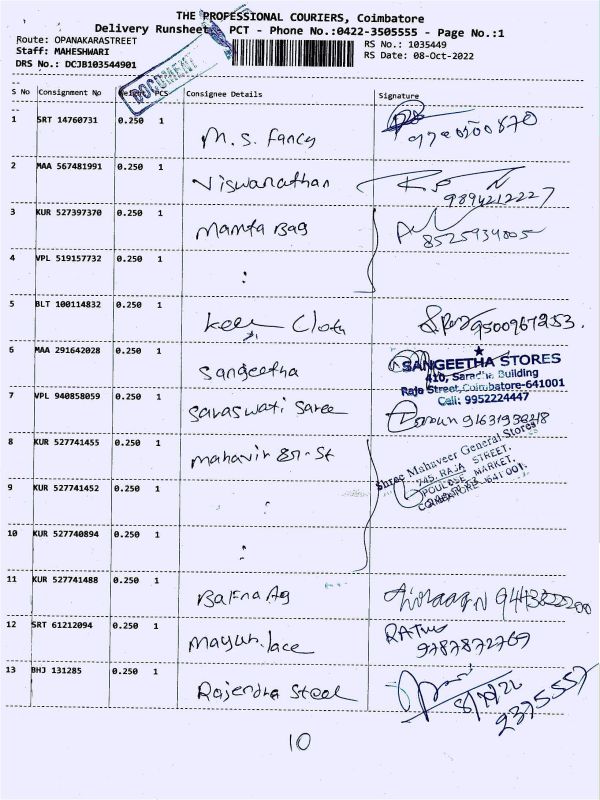 THE PROFESSIONAL COURIERS, Coimbatore
Delivery Runsheet PCT - Phone No.:0422-3505555 - Page No.:1
Route: OPANAKARASTREET
RS No.: 1035449
Staff: MAHESHWARI
RS Date: 08-Oct-2022
DRS No.: DCJB103544901
DOCUMENT
S No Consignment No PCS Consignee Details Signature
1 SRT 14760731 0.250 1 M.S. Fancy
2 MAA 567481991 0.250 1 Viswanathan 9894212227
3 KUR 527397370 0.250 1 Mamta Bag 8525934005
4 VPL 519157732 0.250 1 :
5 BLT 100114832 0.250 1 9500967253.
6 MAA 291642028 0.250 1 Sangeetha
SANGEETHA STORES
410, Saradha Building
Raja Street, Coimbatore-641001
Cell: 9952224447
7 VPL 940858059 0.250 1 Saraswati Saree
8 KUR 527741455 0.250 1 Mahavir
Shree Mahaveer General Stores
745, RAJA STREET,
POULOSE MARKET,
COIMBATORE - 641 001.
9 KUR 527741452 0.250 1 :
10 KUR 527740894 0.250 1 :
11 KUR 527741488 0.250 1
12 SRT 61212094 0.250 1 Mayur lace 9787872769
13 BHJ 131285 0.250 1 Rajendra Steel 2375557
10